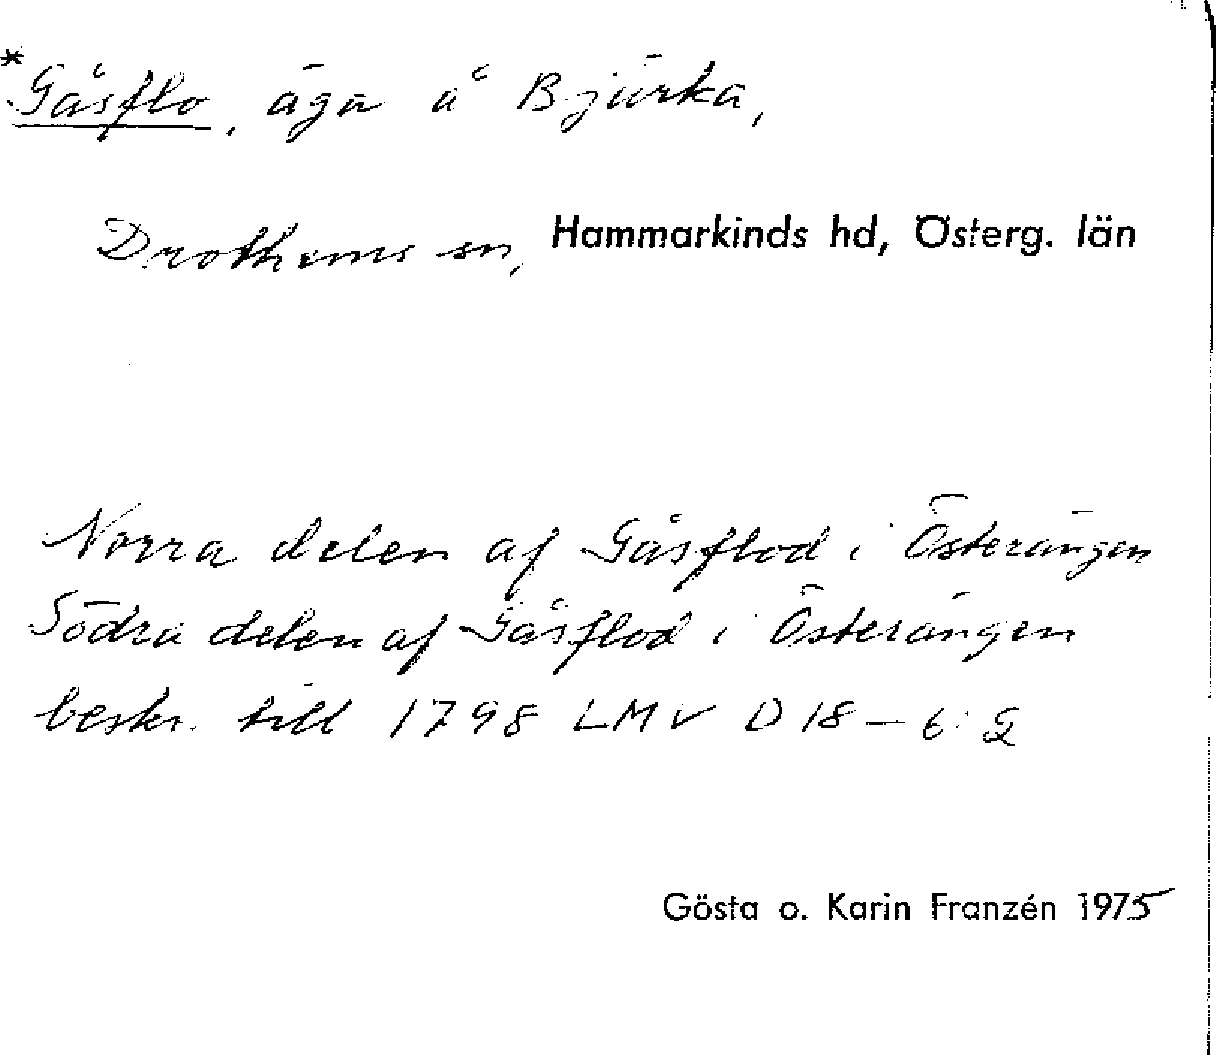 *Gåsflo, äga å Bjärka,
Drothems sn, Hammarkinds hd, Österg. län
Norra delen af Gåsflod i Österängen
Södra delen af Gåsflod i Österängen
beskr. till 1798 LMV D 18 – 6:2
Gösta o. Karin Franzén 1975